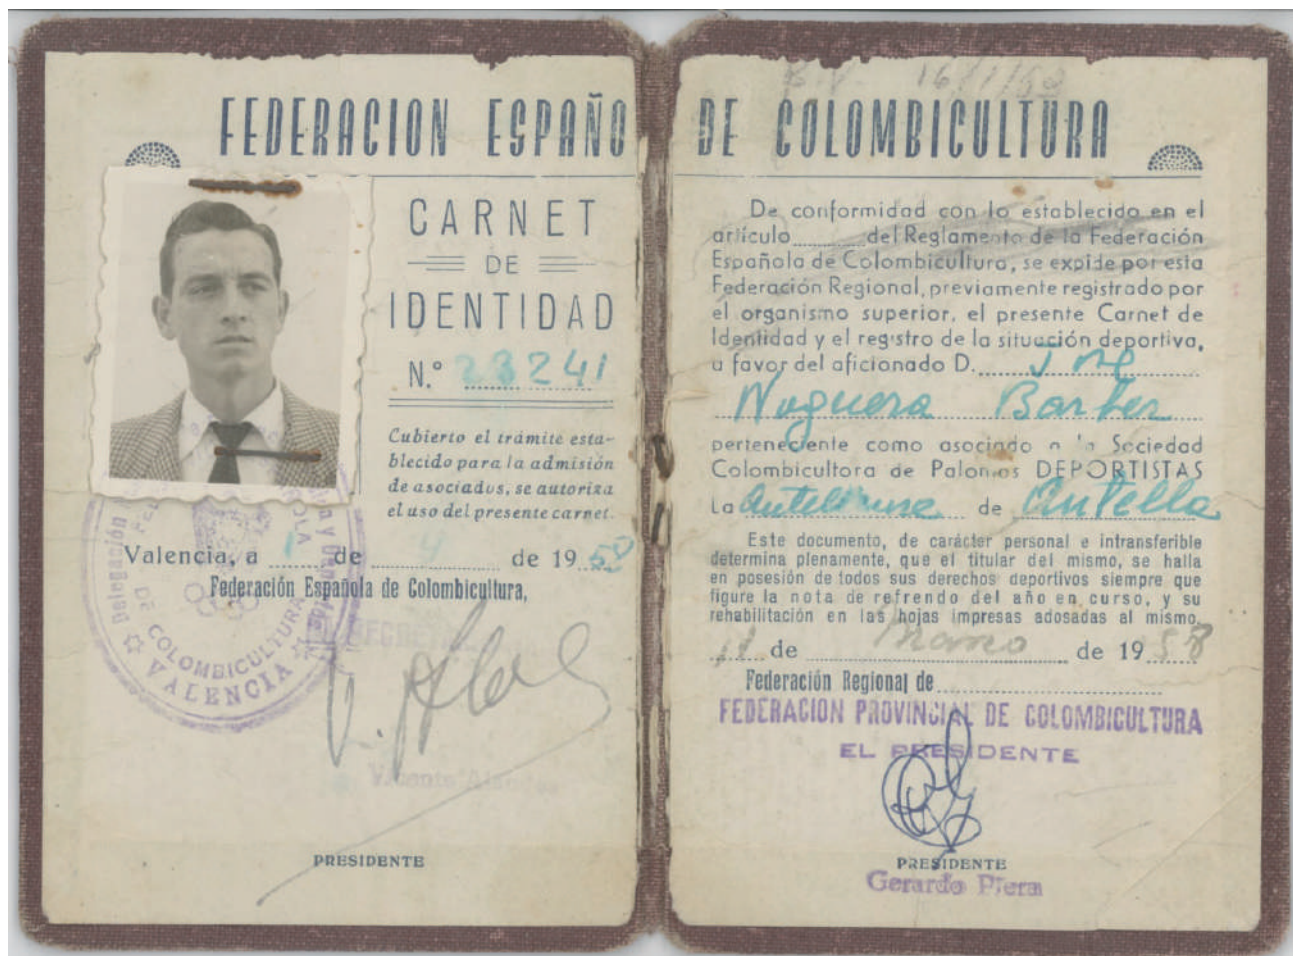 FEDERACION ESPAÑO
CARNET
DE
IDENTIDAD
N.º 23241
Cubierto el trámite esta-
blecido para la admisión
de asociados, se autoriza
el uso del presente carnet.
Valencia, a 1 de 4 de 1958
Federación Española de Colombicultura,
DE COLOMBICULTURA
VALENCIA
PRESIDENTE
16/1/
DE COLOMBICULTURA
De conformidad con lo establecido en el
artículo del Reglamento de la Federación
Española de Colombicultura, se expide por esta
Federación Regional, previamente registrado por
el organismo superior, el presente Carnet de
Identidad y el registro de la situación deportiva,
a favor del aficionado D. José
Noguera Barber
perteneciente como asociado a la Sociedad
Colombicultora de Palomos DEPORTISTAS
La de Antella
Este documento, de carácter personal e intransferible
determina plenamente, que el titular del mismo, se halla
en posesión de todos sus derechos deportivos siempre que
figure la nota de refrendo del año en curso, y su
rehabilitación en las hojas impresas adosadas al mismo.
de Marzo de 1958
Federación Regional de
FEDERACION PROVINCIAL DE COLOMBICULTURA
EL PRESIDENTE
PRESIDENTE
Gerardo Piera